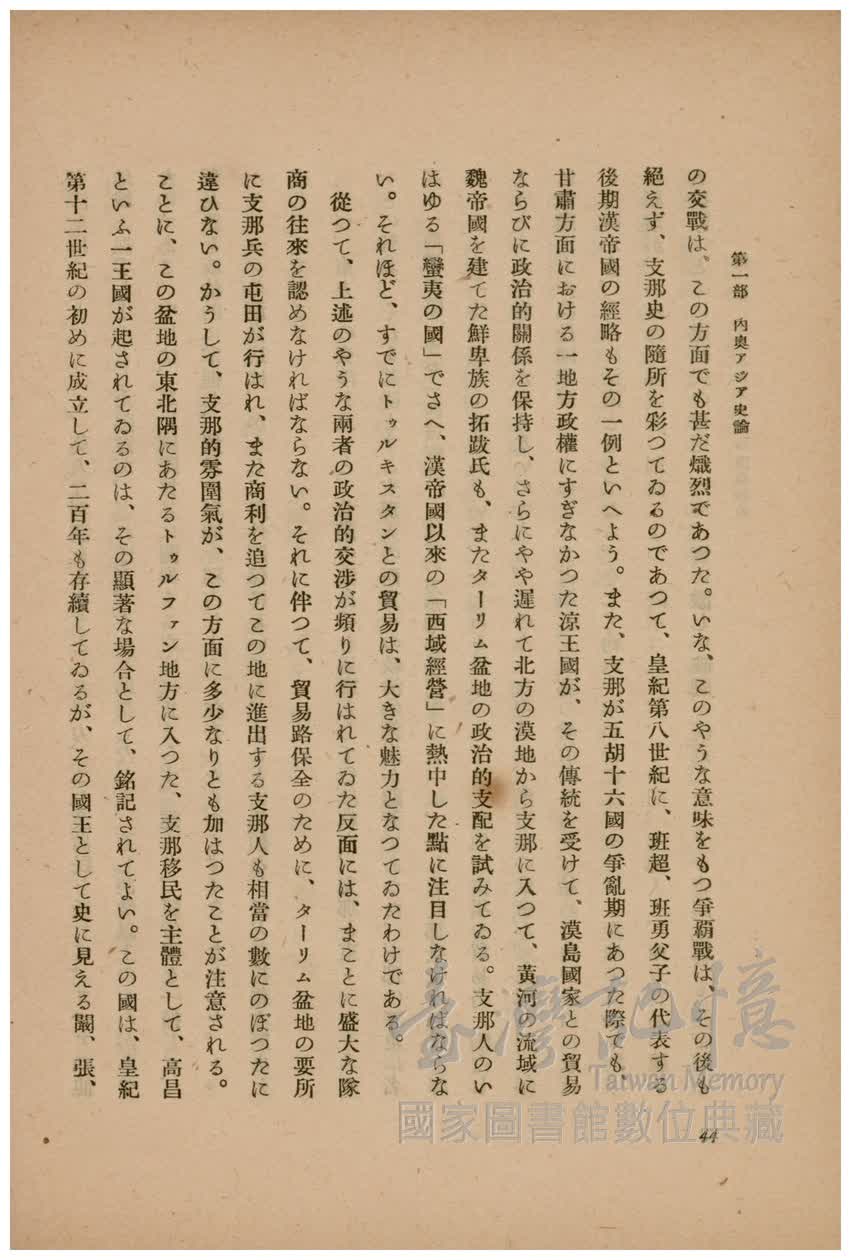 第一部 內奧アジア史論
の交戰は、この方面でも甚だ熾烈であつた。いな、このやうな意味をもつ爭霸戰は、その後も
絕えず、支那史の隨所を彩つてゐるのであつて、皇紀第八世紀に、班超、班勇父子の代表する
後期漢帝國の經略もその一例といへよう。また、支那が五胡十六國の爭亂期にあつた際でも、
甘肅方面における一地方政權にすぎなかつた涼王國が、その傳統を受けて、漠島國家との貿易
ならびに政治的關係を保持し、さらにやや遲れて北方の漠地から支那に入つて、黃河の流域に
魏帝國を建てた鮮卑族の拓跋氏も、またターリム盆地の政治的支配を試みてゐる。支那人のい
はゆる「蠻夷の國」でさへ、漢帝國以來の「西域經營」に熱中した點に注目しなければならな
い。それほど、すでにトゥルキスタンとの貿易は、大きな魅力となつてゐたわけである。
從つて、上述のやうな兩者の政治的交涉が頻りに行はれてゐた反面には、まことに盛大な隊
商の往來を認めなければならない。それに伴つて、貿易路保全のために、ターリム盆地の要所
に支那兵の屯田が行はれ、また商利を追つてこの地に進出する支那人も相當の數にのぼつたに
違ひない。かうして、支那的雰圍氣が、この方面に多少なりとも加はつたことが注意される。
ことに、この盆地の東北隅にあたるトゥルファン地方に入つた、支那移民を主體として、高昌
といふ一王國が起されてゐるのは、その顯著な場合として、銘記されてよい。この國は、皇紀
第十二世紀の初めに成立して、二百年も存續してゐるが、その國王として史に見える闞、張、
44
臺灣記憶
Taiwan Memory
國家圖書館數位典藏